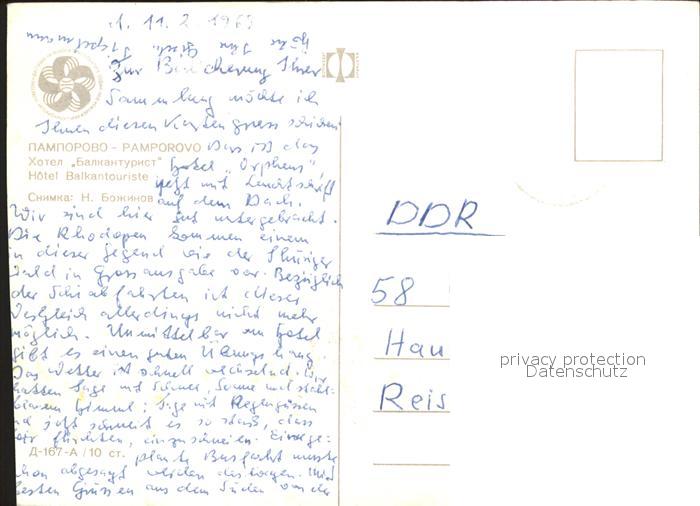 d. 11.2.1969
Zur Bereicherung Ihrer
Sammlung möchte ich
Ihnen diesen Kartengruss schicken
ПАМПОРОВО - PAMPOROVO Das ist das
Хотел „Балкантурист" Hotel „Orpheus",
Hôtel Balkantouriste jetzt mit Leuchtschrift
Снимка: Н. Божинов auf dem Dach.
Wir sind hier gut untergebracht.
Die Rhodopen kommen einem
in dieser Gegend wie der Thüringer
Wald in Grossausgabe vor. Bezüglich
der Schiabfahrten ist dieser
Vergleich allerdings nicht mehr
möglich. Unmittelbar am Hotel
gibt es einen guten Übungshang.
Das Wetter ist schnell wechselnd. Wir
hatten Tage mit Schnee, Sonne und
blauem Himmel; Tage mit Regengüssen
und jetzt schneit es so stark, dass
wir fürchten, einzuschneien. Eine ge-
Д-167-А / 10 ст. plante Busfahrt musste
schon abgesagt werden deswegen. Mit
besten Grüssen aus dem Süden von der
DDR
58
Hau
Reis
privacy protection
Datenschutz